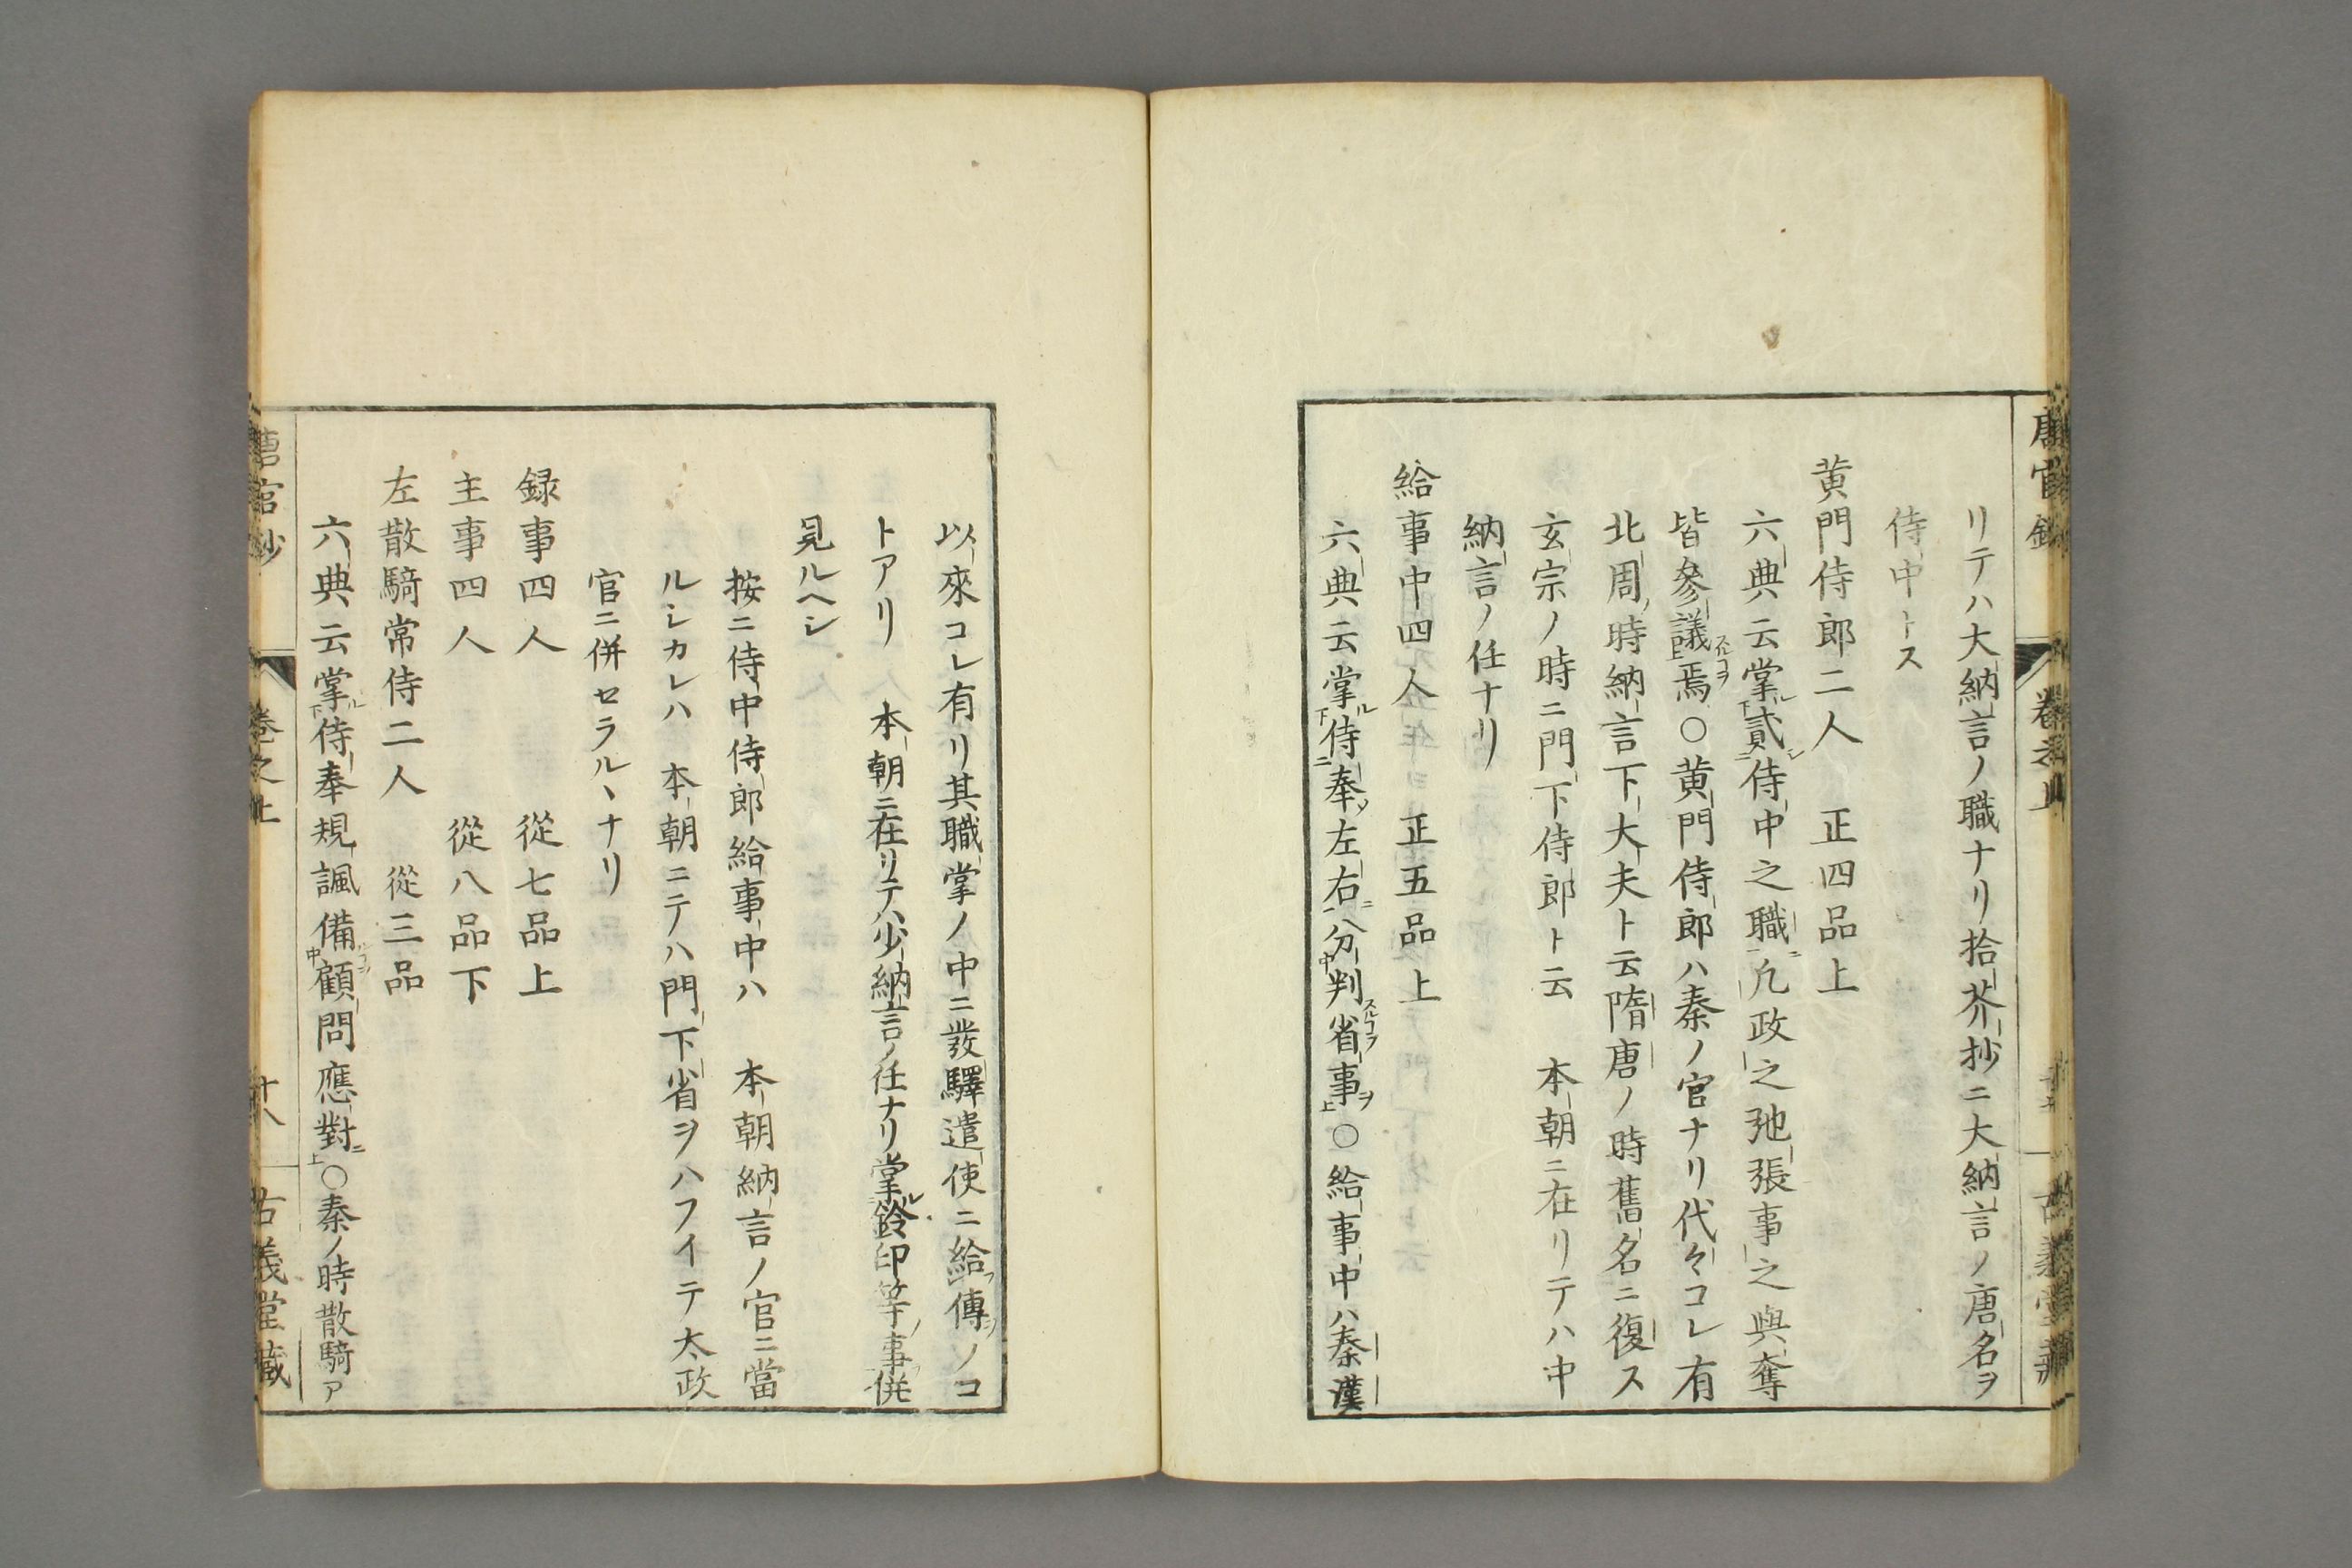 リテハ大納言ノ職ナリ拾芥抄ニ大納言ノ唐名ヲ
侍中トス
黄門侍郎二人　正四品上
六典云掌貳侍中之職凢政之弛張事之與奪
皆參議焉○黄門侍郎ハ秦ノ官ナリ代々コレ有
北周ノ時納言下大夫ト云隋唐ノ時舊名ニ復ス
玄宗ノ時ニ門下侍郎ト云　本朝ニ在リテハ中
納言ノ任ナリ
給事中四人　正五品上
六典云掌侍奉左右分判省事○給事中ハ秦漢
以來コレ有リ其職掌ノ中ニ發驛遣使ニ給傳ノコ
トアリ　本朝ニ在リテハ少納言ノ任ナリ掌鈴印等事併
見ルヘシ
按ニ侍中侍郎給事中ハ　本朝納言ノ官ニ當
ルシカレハ　本朝ニテハ門下省ヲハフイテ太政
官ニ併セラルヽナリ
録事四人　從七品上
主事四人　從八品下
左散騎常侍二人　從三品
六典云掌侍奉規諷備顧問應對○秦ノ時散騎ア
唐官鈔　卷之上　十八　古義堂藏